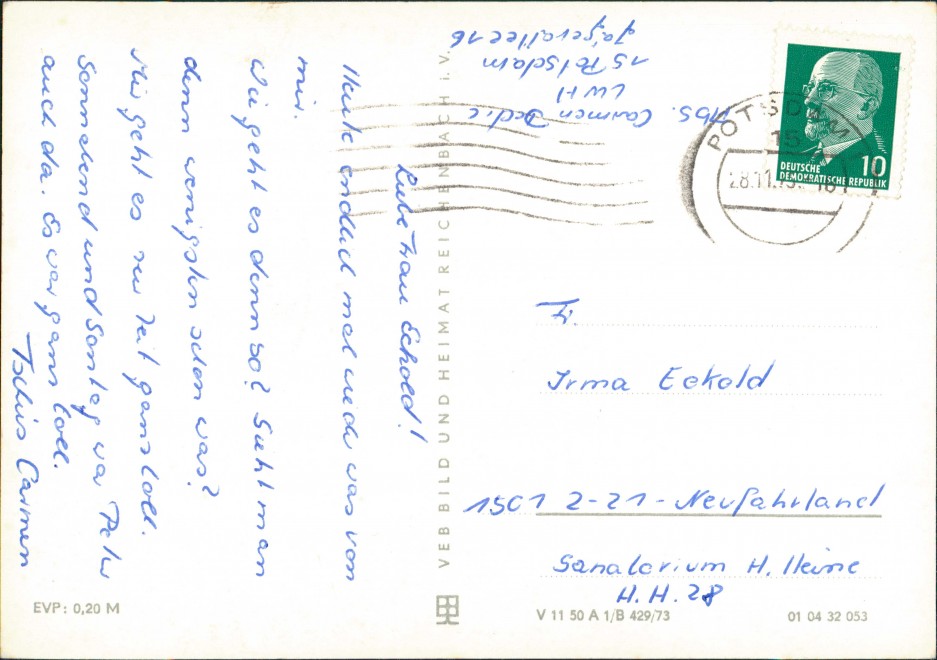 Liebe Frau Eckold!
Heute endlich mal wieder was von
mir.
Wie geht es denn so? Sieht man
denn wenigsten schon was?
Mir geht es zur Zeit ganz toll.
Sonnabend und Sontag war Peter
auch da. Es war ganz toll.
Tschüs Carmen
Abs. Carmen
LWH
15 Potsdam
Jägerallee 16
POTSDAM
15
28.11.
DEUTSCHE
DEMOKRATISCHE REPUBLIK
10
Fr.
Irma Eckold
1501 2-21- Neufahrland
Sanatorium H. Heine
H.H. 28
VEB BILD UND HEIMAT REICHENBACH i. V.
EVP: 0,20 M
V 11 50 A 1/B 429/73
01 04 32 053